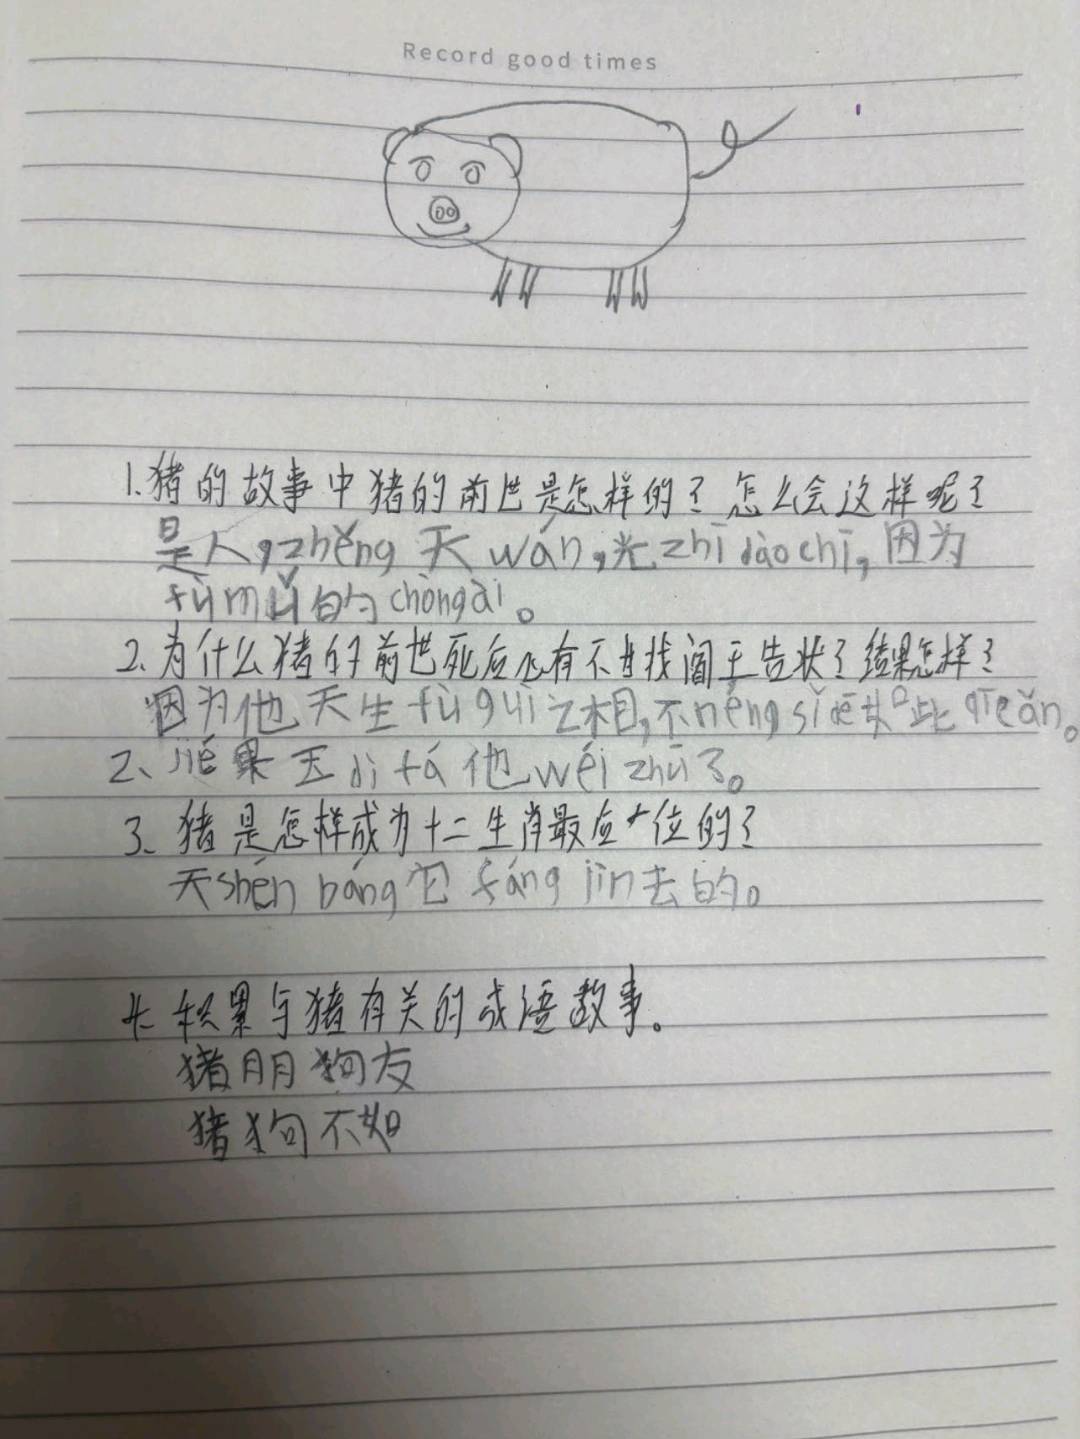 Record good times
1.猪的故事中猪的前世是怎样的？怎么会这样呢？
是人,zhěng天wán,光zhī dào chī,因为
fù mǔ的chǒng ài。
2、为什么猪的前世死后还有不甘找阎王告状？结果怎样？
因为他天生fù guì之相,不néng sǐ
2、jié果玉dì fá他wéi zhū了。
3、猪是怎样成为十二生肖最后一位的？
天shén bāng它fàng jìn去的。
4、积累与猪有关的成语故事。
猪朋狗友
猪狗不如